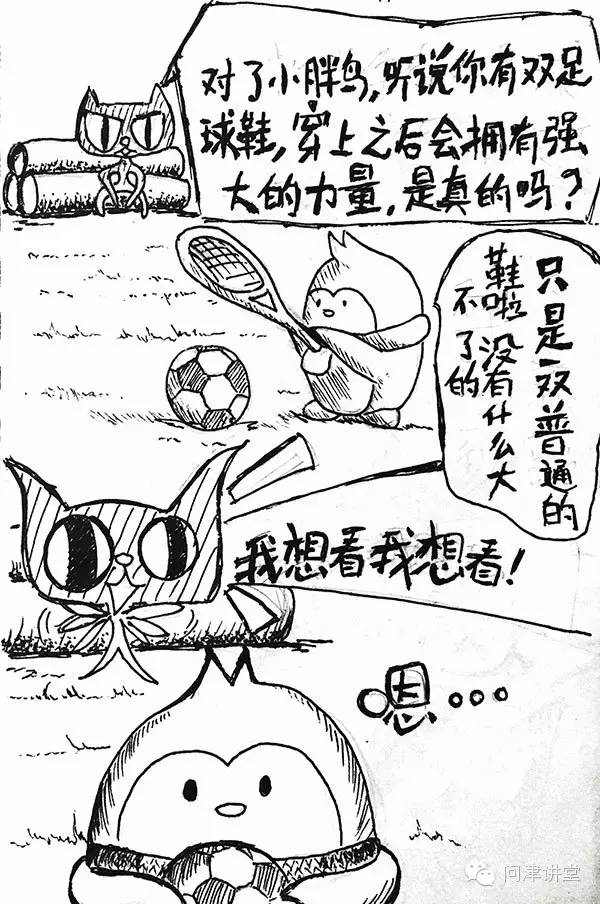 对了小胖鸟,听说你有双足
球鞋,穿上之后会拥有强
大的力量,是真的吗?
只是一双普通的
鞋啦没有什么大
不了的
我想看我想看!
嗯...
问津讲堂